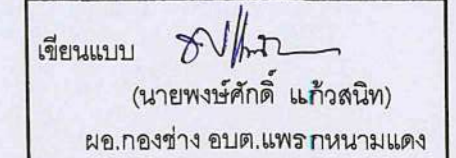 เขียนแบบ
(นายพงษ์ศักดิ์ แก้วสนิท)
ผอ.กองช่าง อบต.แพรกหนามแดง